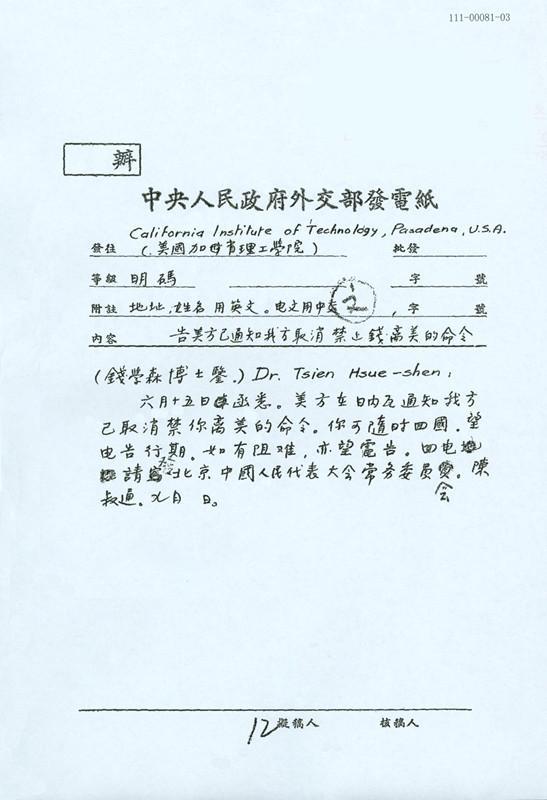 111-00081-03
辦
中央人民政府外交部發電紙
California Institute of Technology, Pasadena, U.S.A.
發往 (美國加州省理工學院) 批發
等級 明碼 字 號
附註 地址,姓名用英文。电文用中文 , 字 號
內容 告美方已通知我方取消禁止錢离美的命令
(錢學森博士鑒.) Dr. Tsien Hsue-shen:
六月十五日函悉。美方在日內瓦通知我方
已取消禁你离美的命令。你可隨时回國。望
电告行期。如有阻难,亦望電告。回电
請發北京中國人民代表大会常务委員会。陳
叔通。九月 日。
12 擬稿人 核稿人